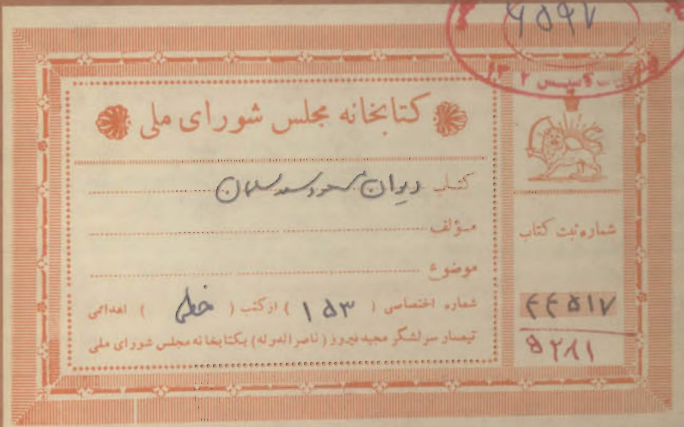 ۲۵۹۷
کتابخانه مجلس شورای ملی
کتاب دیوان مسعود سعد سلمان
مؤلف
موضوع
شماره اختصاصی ( ۱۵۳ ) از کتب ( خطی ) اهدائی
تیمسار سرلشگر مجید فیروز (ناصرالدوله) بکتابخانه مجلس شورای ملی
شماره ثبت کتاب
۴۴۵۱۷
۵۲۸۱